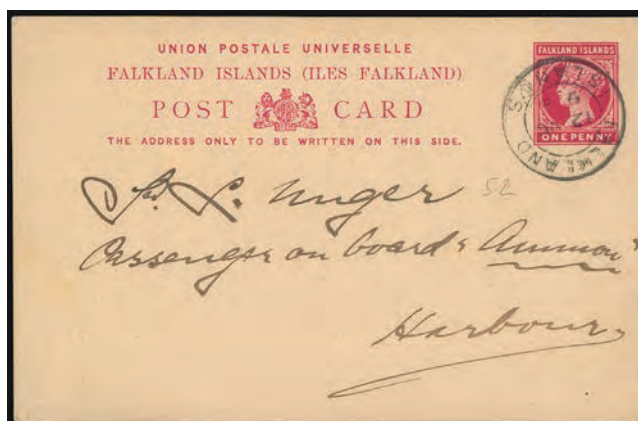 UNION POSTALE UNIVERSELLE
FALKLAND ISLANDS (ILES FALKLAND)
POST CARD
THE ADDRESS ONLY TO BE WRITTEN ON THIS SIDE.
FALKLAND ISLANDS
ONE PENNY
FALKLAND ISLANDS
Unger
52
Passenger on board "Ammon"
Harbour